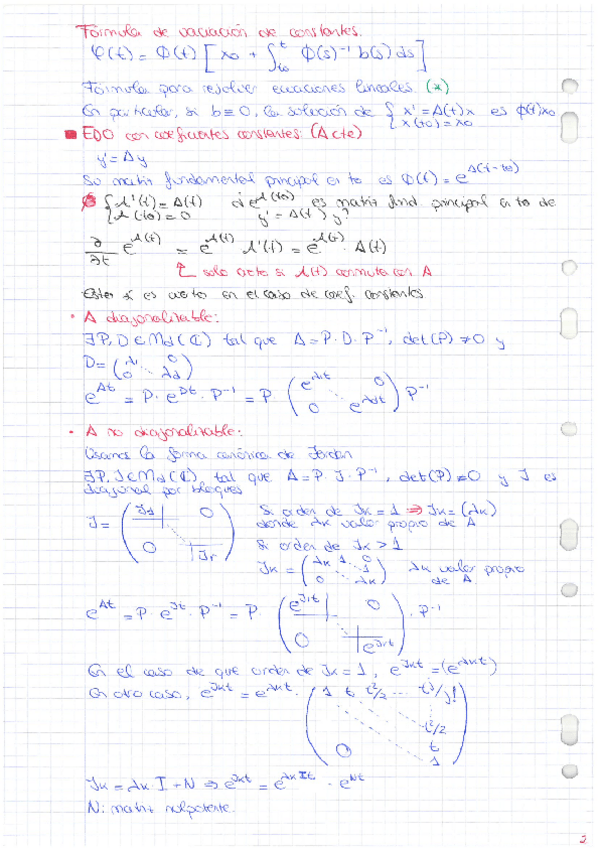 Fórmula de variación de constantes.
φ(t) = Φ(t) [ x₀ + ∫_{t₀}^{t} Φ(s)⁻¹ b(s) ds ]
Fórmula para resolver ecuaciones lineales (*)
En particular, si b ≡ 0, la solución de { x' = A(t)x es Φ(t)x₀
x(t₀) = x₀
EDO con coeficientes constantes: (A cte)
y' = Ay
Su matriz fundamental principal en t₀ es Φ(t) = e^{A(t-t₀)}
{ Λ'(t) = A(t) d e^{Λ(t)} es matriz fund. principal en t₀ de
Λ(t₀) = 0 y' = A(t) y?
∂/∂t e^{Λ(t)} = e^{Λ(t)} Λ'(t) = e^{Λ(t)} · A(t)
↑ solo cierto si Λ(t) conmuta con A
Esto sí es cierto en el caso de coef. constantes
· A diagonalizable:
∃P, D ∈ Md(ℂ) tal que A = P·D·P⁻¹, det(P) ≠ 0 y
D = (λ₁ 0
0 λd)
e^{At} = P·e^{Dt}·P⁻¹ = P· (e^{λ₁t} 0
0 e^{λdt}) P⁻¹
· A no diagonalizable:
Usamos la forma canónica de Jordan
∃P, J ∈ Md(ℂ) tal que A = P·J·P⁻¹, det(P) ≠ 0 y J es
diagonal por bloques
J = (J₁ 0
0 Jr)
Si orden de Jk = 1 ⇒ Jk = (λk)
donde λk valor propio de A
Si orden de Jk > 1
Jk = (λk 1 0
1
0 λk) λk valor propio
de A
e^{At} = P·e^{Jt}·P⁻¹ = P· (e^{J₁t} 0
0 e^{Jrt}) · P⁻¹
En el caso de que orden de Jk = 1, e^{Jkt} = (e^{λkt})
En otro caso, e^{Jkt} = e^{λkt} · (1 t t²/2 ... t^j/j!
t²/2
t
0 1)
Jk = λk·I + N ⇒ e^{Jkt} = e^{λkIt} · e^{Nt}
N: matriz nilpotente.
2